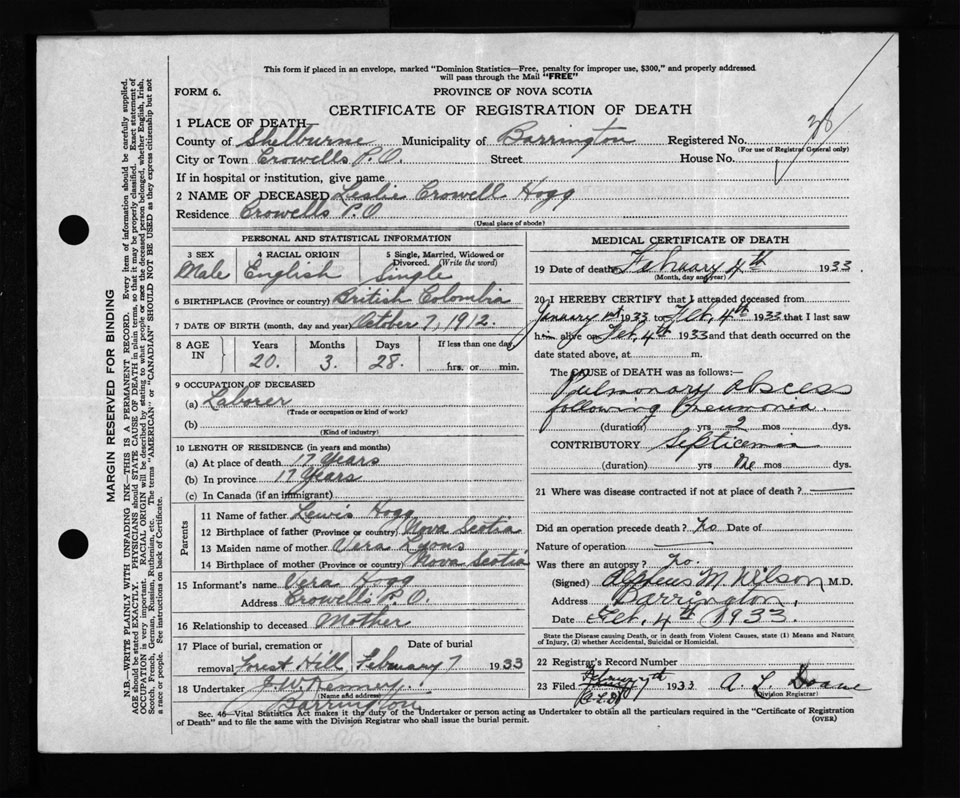 This form if placed in an envelope, marked "Dominion Statistics—Free, penalty for improper use, $300," and properly addressed
will pass through the Mail "FREE"
FORM 6.
PROVINCE OF NOVA SCOTIA
CERTIFICATE OF REGISTRATION OF DEATH
1 PLACE OF DEATH
County of Shelburne Municipality of Barrington Registered No.
(For use of Registrar General only)
City or Town Crowells P.O Street House No.
If in hospital or institution, give name
2 NAME OF DECEASED Leslie Crowell Hogg
Residence Crowells P.O
(Usual place of abode)
PERSONAL AND STATISTICAL INFORMATION
3 SEX 4 RACIAL ORIGIN 5 Single, Married, Widowed or
Divorced. (Write the word)
Male English Single
6 BIRTHPLACE (Province or country) British Colombia
7 DATE OF BIRTH (month, day and year) October 7, 1912.
8 AGE IN Years Months Days If less than one day,
20. 3. 28. hrs. or min.
9 OCCUPATION OF DECEASED
(a) Laborer
(Trade or occupation or kind of work)
(b)
(Kind of industry)
10 LENGTH OF RESIDENCE (in years and months)
(a) At place of death 17 Years
(b) In province 17 Years
(c) In Canada (if an immigrant)
Parents
11 Name of father Lewis Hogg
12 Birthplace of father (Province or country) Nova Scotia
13 Maiden name of mother Vera Lyons
14 Birthplace of mother (Province or country) Nova Scotia
15 Informant's name Vera Hogg
Address Crowells P.O.
16 Relationship to deceased Mother
17 Place of burial, cremation or Date of burial
removal Forest Hill February 7 1933
18 Undertaker J. W. Kenney.
(Name and address)
Barrington
MEDICAL CERTIFICATE OF DEATH
19 Date of death February 4th 1933.
(Month, day and year)
20 I HEREBY CERTIFY that I attended deceased from
January 1st 1933 to Feb, 4th 1933 that I last saw
him alive on Feb, 4th 1933 and that death occurred on the
date stated above, at m.
The CAUSE of DEATH was as follows:
Pulmonary abscess
following Pneumonia.
(duration) yrs 2 mos dys.
CONTRIBUTORY Septicemia
(duration) yrs One mos dys.
21 Where was disease contracted if not at place of death?
Did an operation precede death? No Date of
Nature of operation
Was there an autopsy? No.
(Signed) Alpheus M. Wilson M.D.
Address Barrington,
Date Feb, 4th 1933.
State the Disease causing Death, or in death from Violent Causes, state (1) Means and Nature
of Injury, (2) whether Accidental, Suicidal or Homicidal.
22 Registrar's Record Number
23 Filed February 7th 1933 A. L. Doane
(Division Registrar)
Sec. 46—Vital Statistics Act makes it the duty of the Undertaker or person acting as Undertaker to obtain all the particulars required in the "Certificate of Registration
of Death" and to file the same with the Division Registrar who shall issue the burial permit.
(OVER)
MARGIN RESERVED FOR BINDING
N.B.—WRITE PLAINLY WITH UNFADING INK—THIS IS A PERMANENT RECORD. Every item of information should be carefully supplied.
AGE should be stated EXACTLY. PHYSICIANS should STATE CAUSE OF DEATH in plain terms, so that it may be properly classified. Exact statement of
OCCUPATION is very important. RACIAL ORIGIN will be described by stating to what people or race the deceased person belonged, whether English, Irish,
Scotch, French, German, Russian, Ruthenian, etc. The terms "AMERICAN" or "CANADIAN" SHOULD NOT BE USED as they express citizenship but not
a race or people. See instructions on back of Certificate.